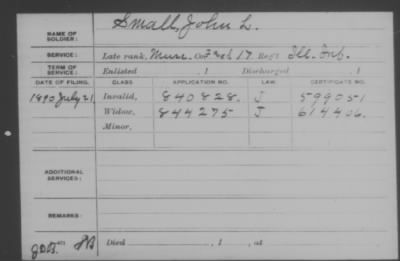 NAME OF SOLDIER: Small, John L.
SERVICE: Late rank, Mus. Co. 17 Reg't Ill. Inf.
TERM OF SERVICE: Enlisted , 1 Discharged , 1
DATE OF FILING. CLASS. APPLICATION NO. LAW. CERTIFICATE NO.
1890 July 21 Invalid, 840828. J 599051
Widow, 844275 J 614406.
Minor,
ADDITIONAL SERVICES:
REMARKS:
Died , 1 , at